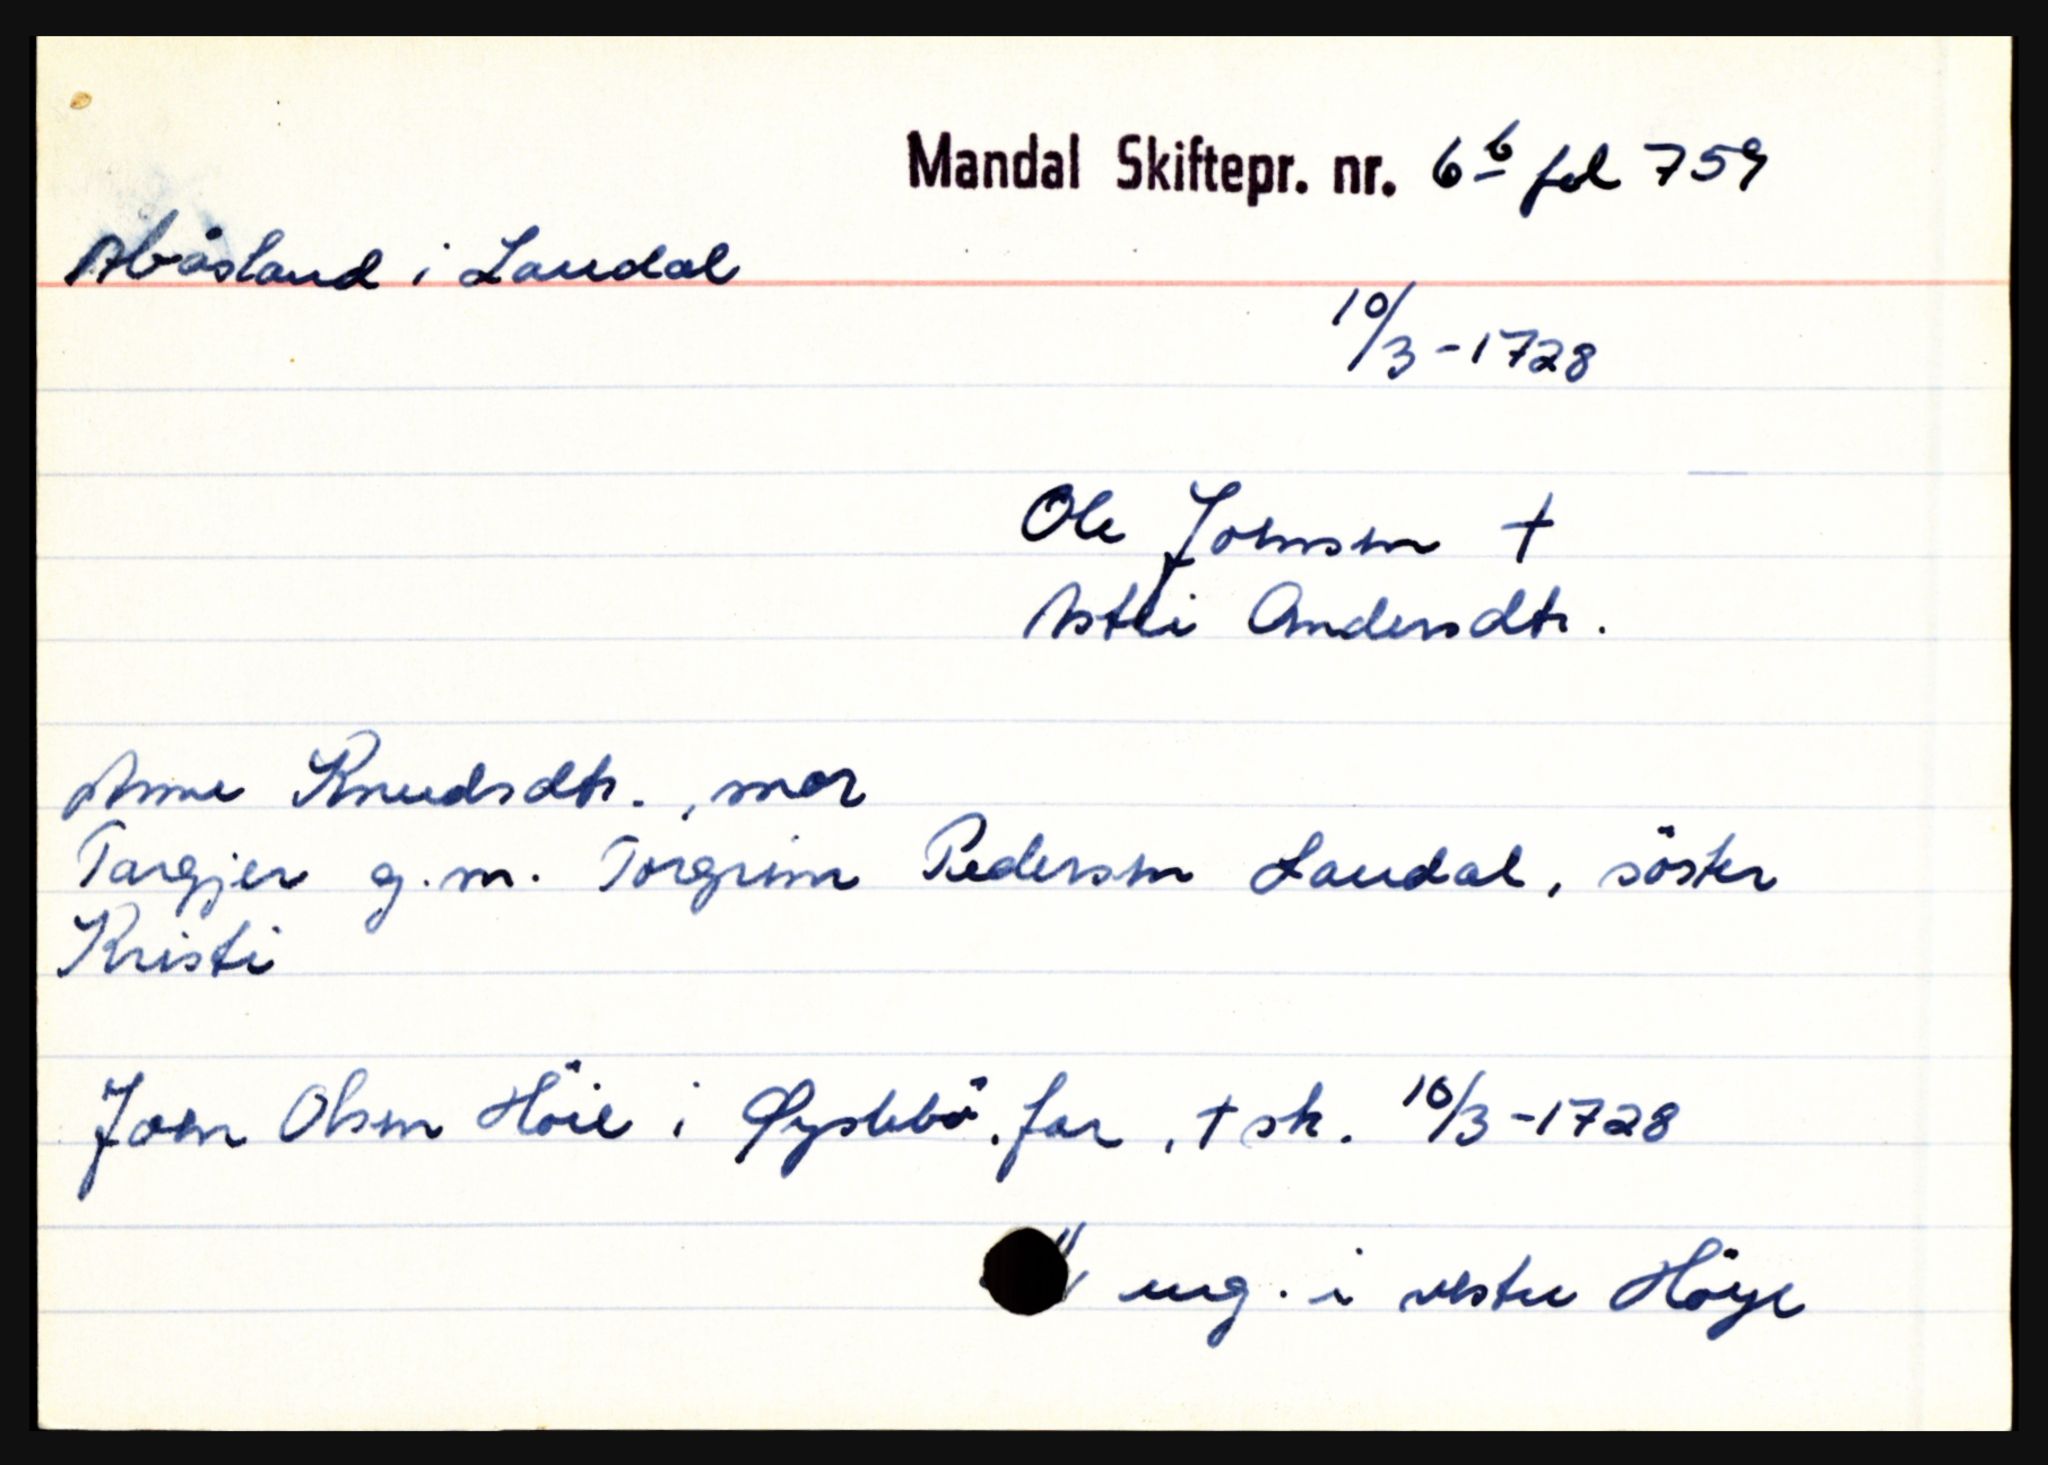 Mandal Skiftepr. nr. 6b fol 759
Abåsland i Laudal
10/3-1728
Ole Johnsen †
Astri Andersdtr.
Anne Knudsdtr., mor
Targjer g.m. Torgrim Pedersen Laudal, söster
Kristi
John Olsen Höie i Øyslebö, far, † sk. 10/3-1728
" eng. i vestre Höye